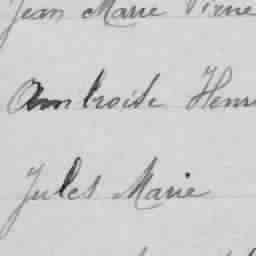 Jean Marie Pierre
Ambroise Henri
Jules Marie